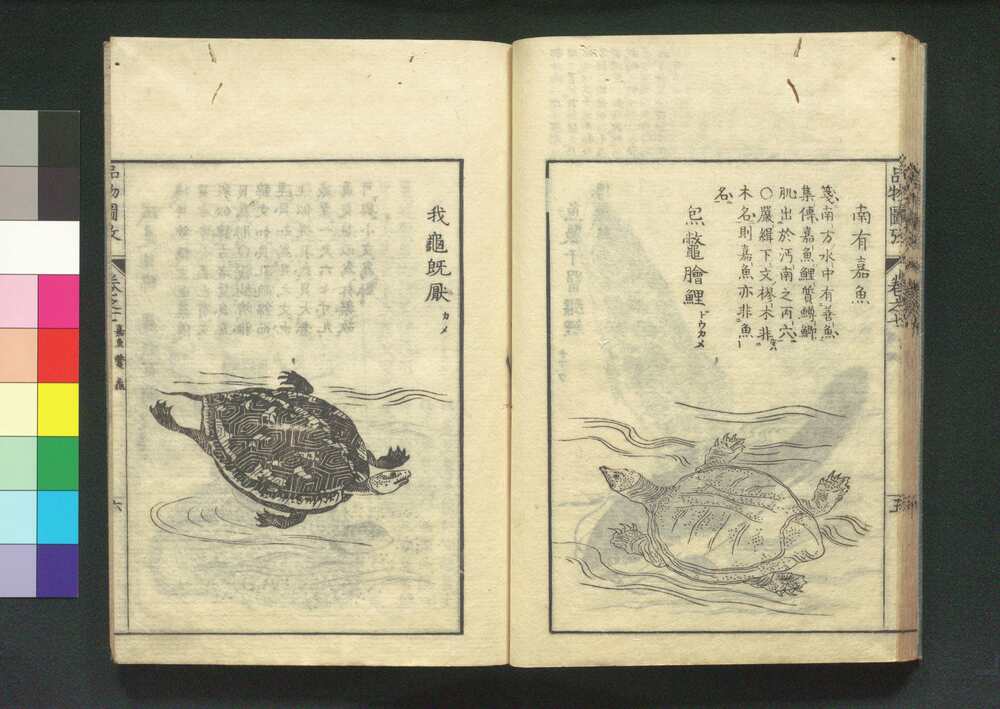 南有嘉魚
箋南方水中有善魚
集傳嘉魚鯉質鱒鯽
肌出於沔南之丙穴
○嚴緝下文樛木非
木名則嘉魚亦非魚
名
炰鼈膾鯉 ドウカメ
我龜既厭 カメ
品物圖攷
卷之七
五
品物圖攷
嘉魚 鼈 龜
六